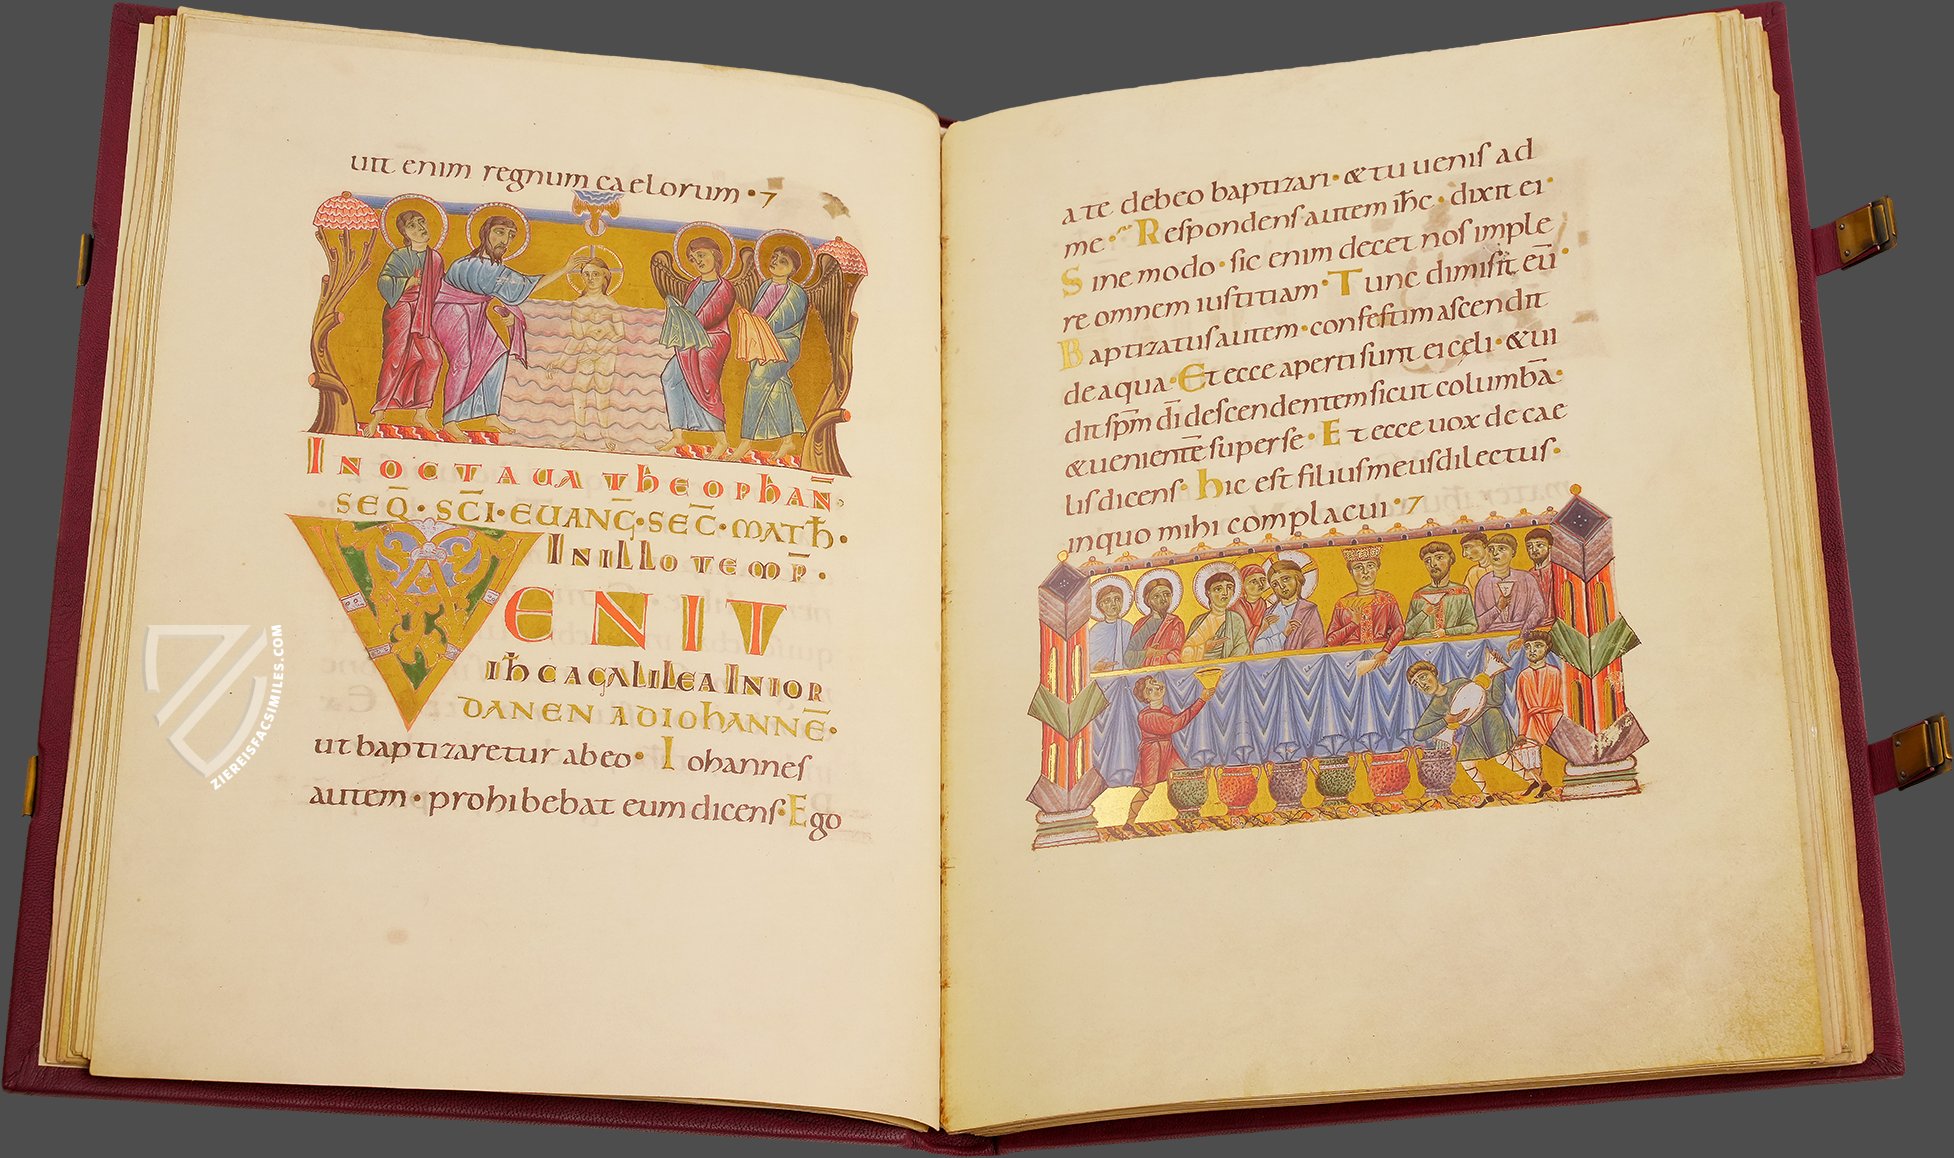 uit enim regnum caelorum · 7
IN OCTAVA THEOPHAÑ·
SEQ̄· SC̄I· EUANG̅· SEC̄· MATH̅·
IN ILLO TEMP̄·
VENIT
IH̄C A GALILEA IN IOR
DANEN AD IOHANNĒ·
ut baptizaretur ab eo· Iohannes
autem· prohibebat eum dicens· Ego
a te debeo baptizari· & tu uenis ad
me· Respondens autem ih̄c· dixit ei·
Sine modo· sic enim decet nos imple
re omnem iustitiam· Tunc dimisit eū·
Baptizatus autem· confestim ascendit
de aqua· Et ecce aperti sunt ei celi· & ui
dit sp̄m dī descendentem sicut columbā·
& uenientē super se· Et ecce uox de cae
lis dicens· hic est filius meus dilectus·
in quo mihi complacui· 7
ZIEREISFACSIMILES.COM